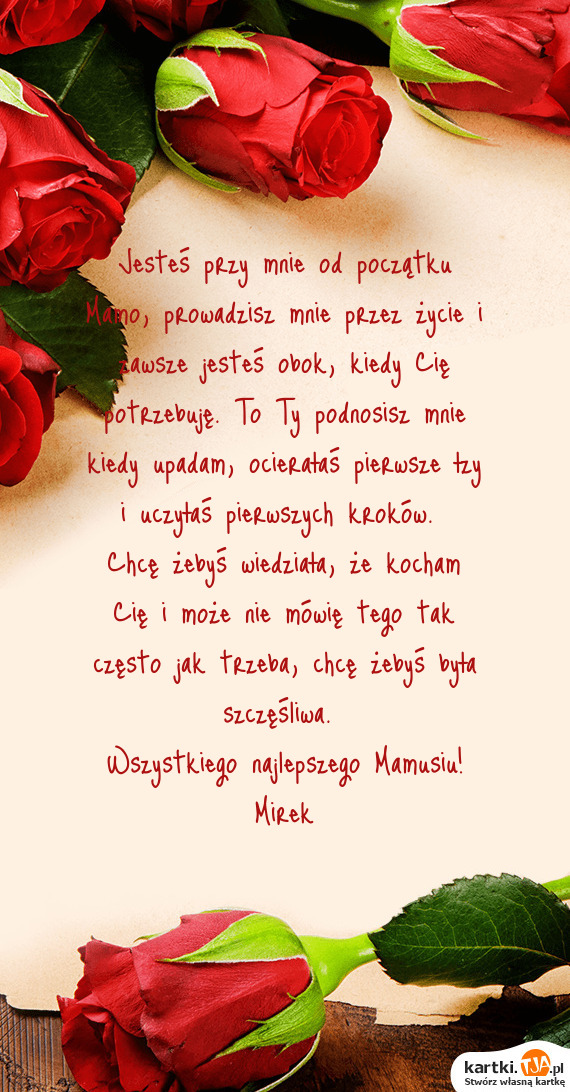 Jesteś przy mnie od początku
Mamo, prowadzisz mnie przez życie i
zawsze jesteś obok, kiedy Cię
potrzebuję. To Ty podnosisz mnie
kiedy upadam, ocierałaś pierwsze łzy
i uczyłaś pierwszych kroków.
Chcę żebyś wiedziała, że kocham
Cię i może nie mówię tego tak
często jak trzeba, chcę żebyś była
szczęśliwa.
Wszystkiego najlepszego Mamusiu!
Mirek
kartki.TJA.pl
Stwórz własną kartkę